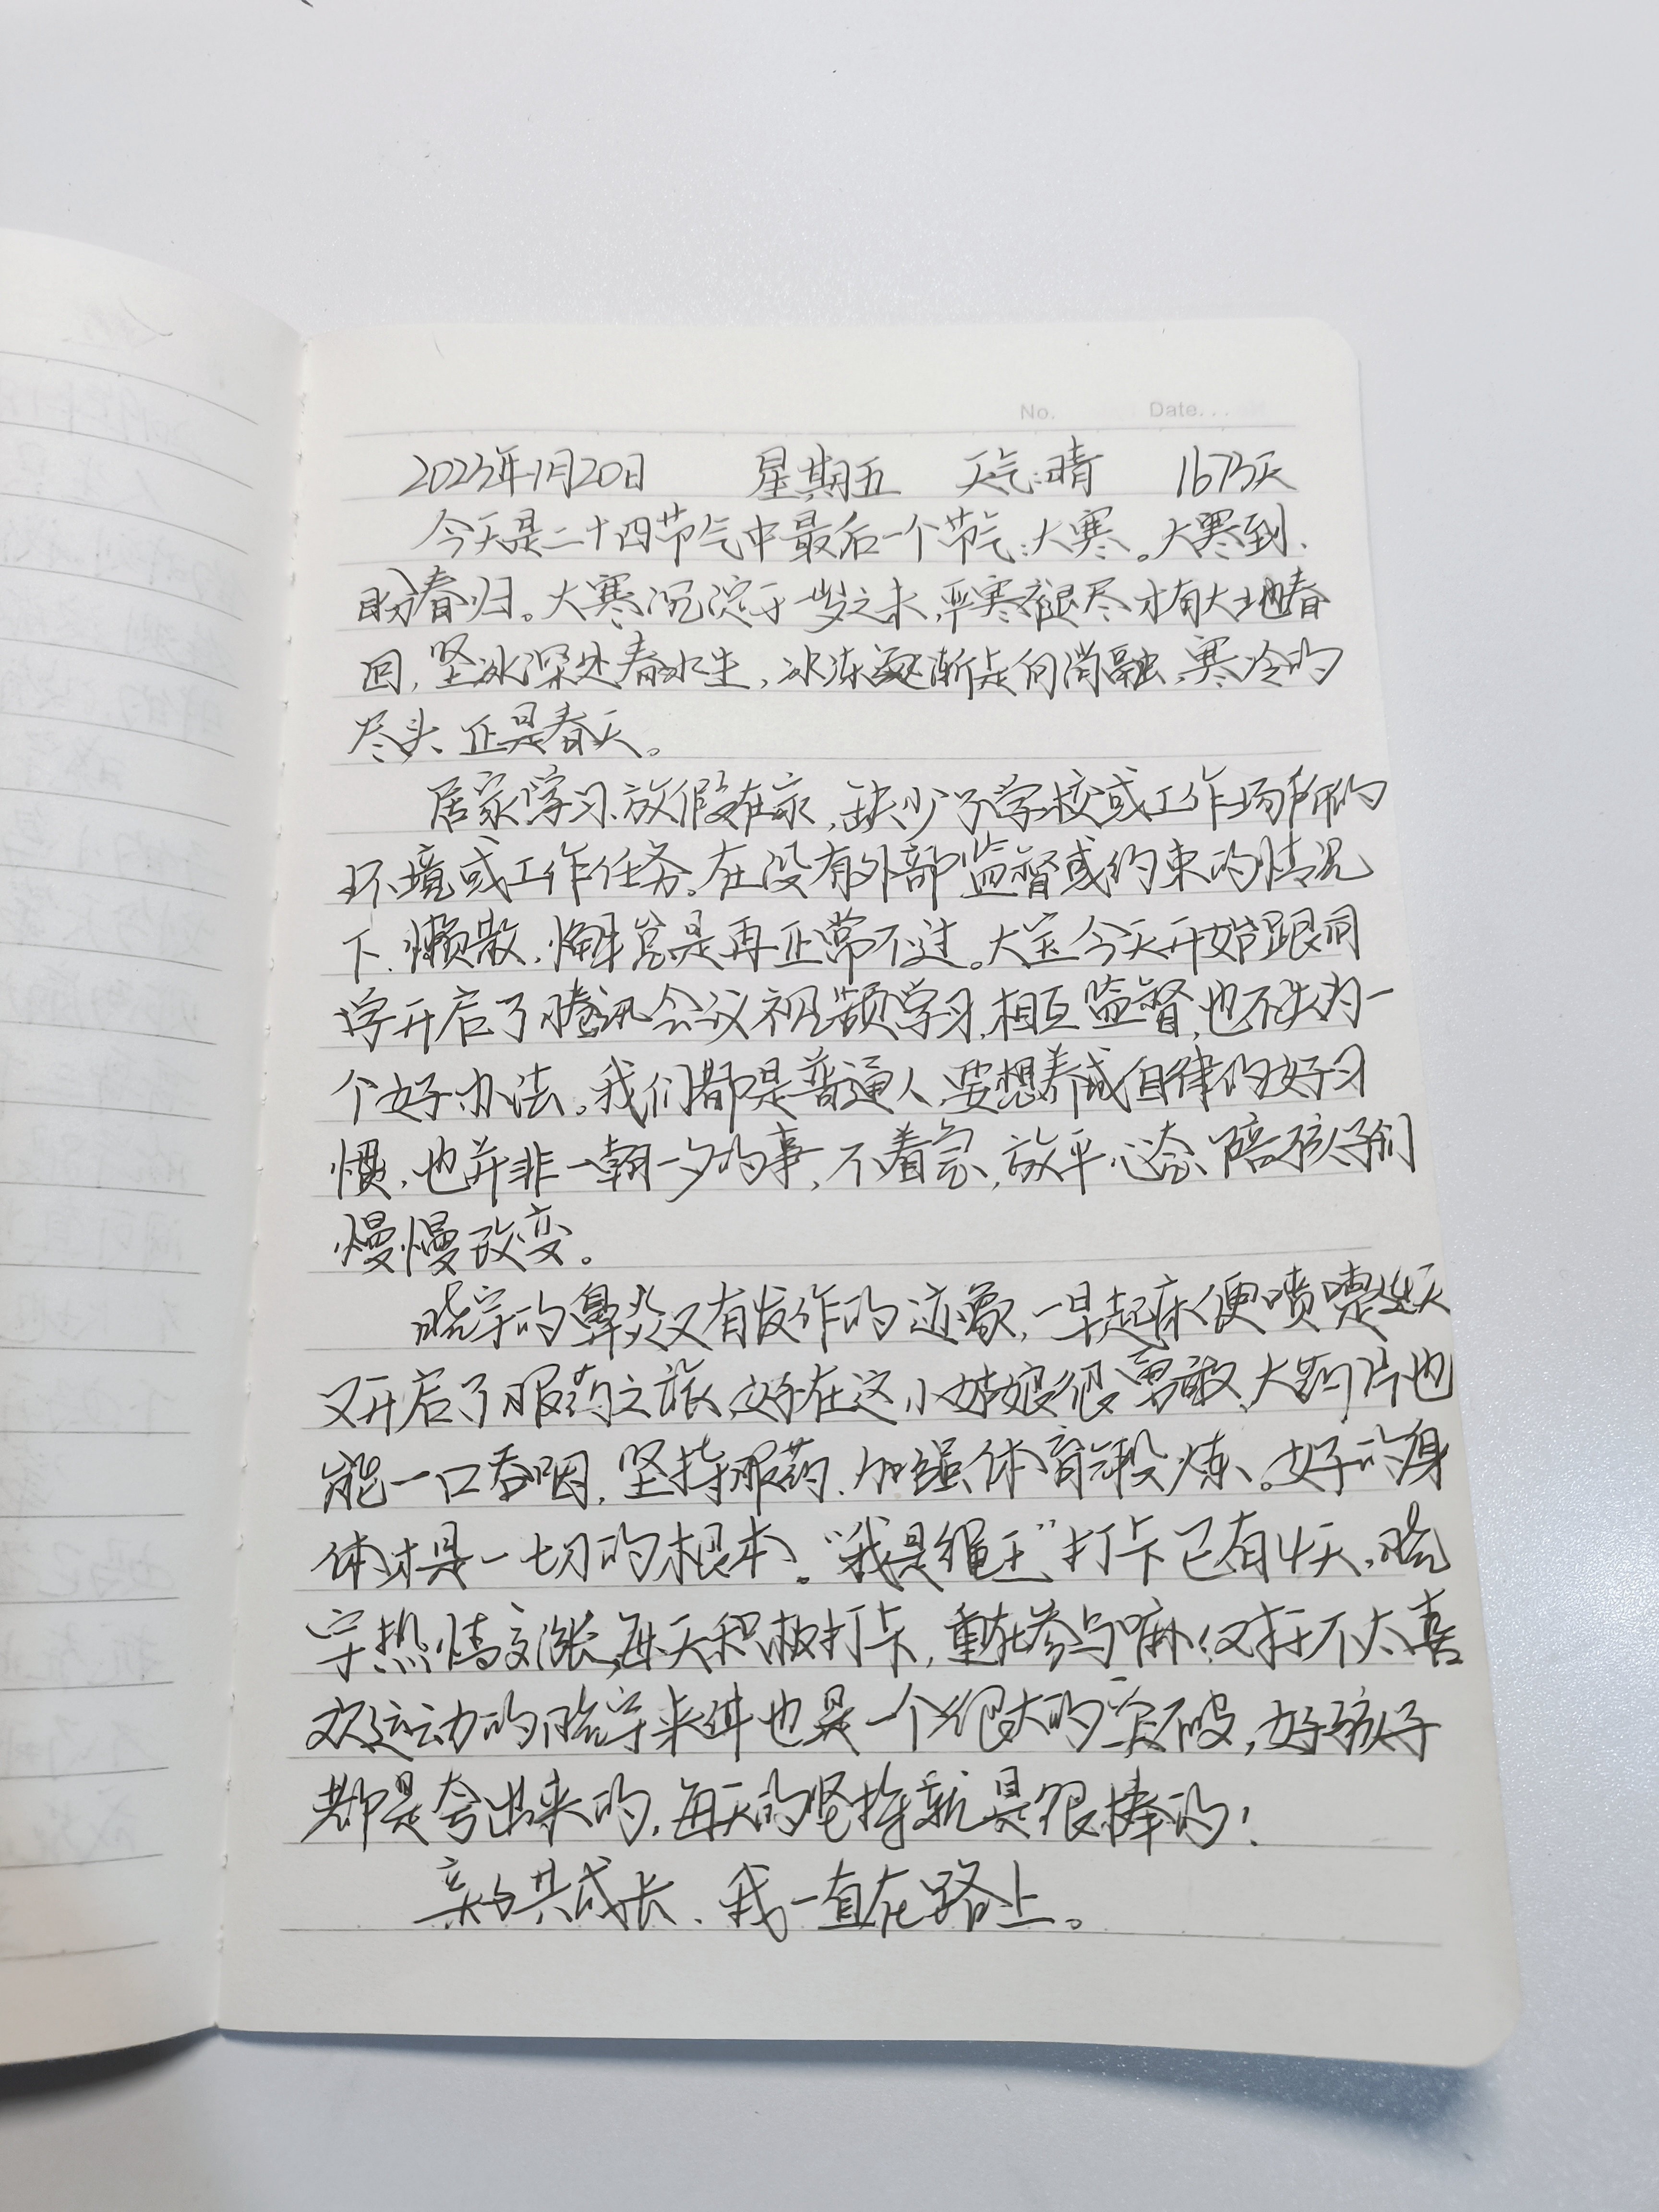 No. Date...
2023年1月20日 星期五 天气:晴 1673天
今天是二十四节气中最后一个节气:大寒。大寒到、
盼春归。大寒沉淀于岁之末,严寒褪尽才有大地春
回,坚冰深处春水生,冰冻逐渐走向消融,寒冷的
尽头、正是春天。
居家学习、放假在家,缺少了学校或工作场所的
环境或工作任务。在没有外部监督或约束的情况
下、懒散、懈怠是再正常不过。大宝今天开始跟同
学开启了腾讯会议视频学习,相互监督,也不失为一
个好办法。我们都是普通人、要想养成自律的好习
惯,也并非一朝一夕的事,不着急,放平心态、陪孩子们
慢慢改变。
晓宇的鼻炎又有发作的迹象,一早起床便喷嚏连天
又开启了服药之旅,好在这小姑娘很勇敢、大药片也
能一口吞咽,坚持服药、加强体育锻炼。好的身
体才是一切的根本。“我是绳王”打卡已有4天,晓
宇热情高涨,每天积极打卡,重在参与嘛!对于不太喜
欢运动的晓宇来讲也是一个很大的突破,好孩子
都是夸出来的,每天的坚持就是很棒的!
亲子共成长、我一直在路上。